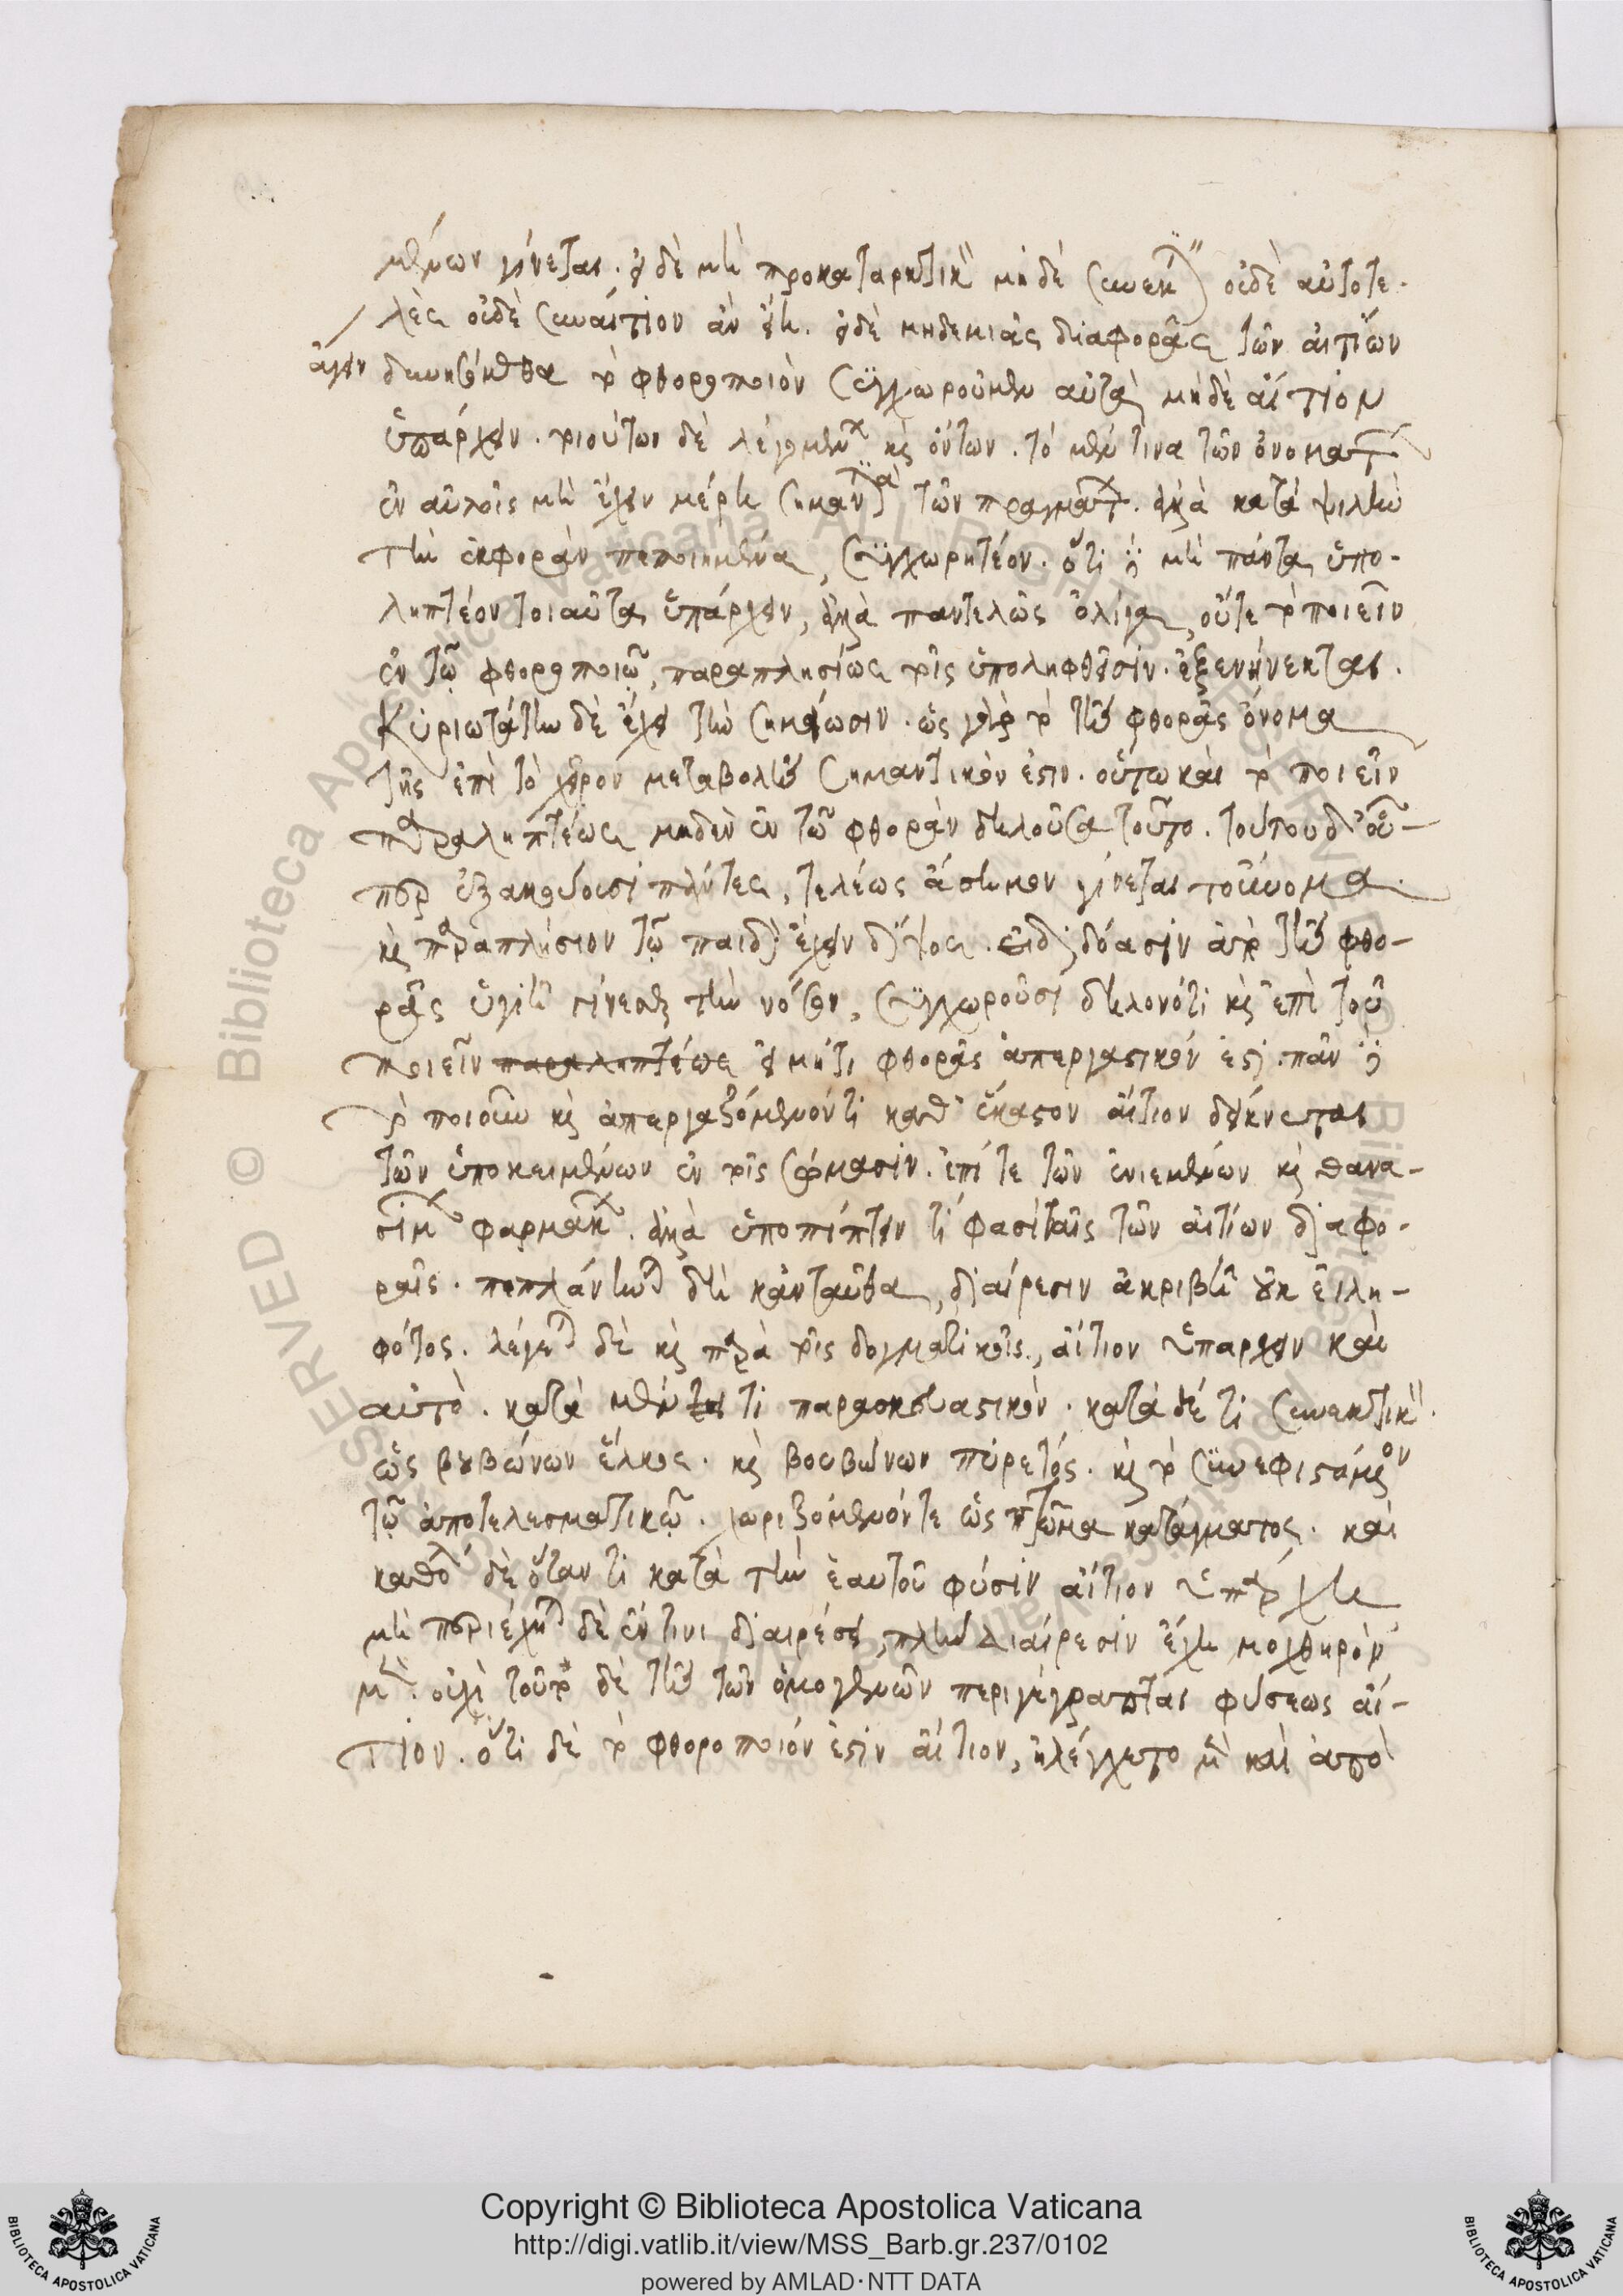 μένων γίνεται. εἰ δὲ μὴ προκαταρκτικὸν μηδὲ συνεκτικὸν οὐδὲ αὐτοτε-
λὲς οὐδὲ συναίτιον ἂν εἴη. εἰ δὲ μηδεμιᾶς διαφορᾶς τῶν αἰτίων
ἄγειν δυνησόμεθα τὸ φθοροποιὸν συγχωροῦμεν αὐτὰ μηδὲ αἴτιον
ὑπάρχειν. τοιούτων δὲ λεγομένων καὶ ὄντων. τὸ μέν τινα τῶν ὀνομάτων
ἐν αὐτοῖς μὴ ἔχειν μέρη σημαντικὰ τῶν πραγμάτων. ἀλλὰ κατὰ ψιλὴν
τὴν ἐκφορὰν πεποιημένα, συγχωρητέον. ὅτι δὲ μὴ πάντα ὑπο-
ληπτέον τοιαῦτα ὑπάρχειν, ἀλλὰ παντελῶς ὀλίγα, οὔτε τὸ ποιεῖν
ἐν τῷ φθοροποιῷ, παραπλησίως τοῖς ὑποληφθεῖσιν. ἐξενήνεκται.
Κυριωτάτην δὲ ἔχει τὴν σημείωσιν. ὡς γὰρ τὸ τῆς φθορᾶς ὄνομα
τῆς ἐπὶ τὸ χεῖρον μεταβολῆς σημαντικόν ἐστιν. οὕτω καὶ τὸ ποιεῖν
παραληπτέως μηδὲν ἐν τῷ φθορὰν δηλοῦσα τοῦτο. τούτου δ' οὗ-
περ ἐξακούουσι πάντες, τελέως ἄσημον γίνεται τοὔνομα.
καὶ παραπλήσιον τῷ παιδὶ ἔχειν δίχος. εἰ διδόασιν ἀπὸ τῆς φθο-
ρᾶς ὑγιῆ γίνεσθαι τὴν νόσον, συγχωροῦσι δηλονότι καὶ ἐπὶ τοῦ
ποιεῖν παραληπτέως εἰ μή τι φθορᾶς ἀπεργαστικόν ἐστι. πᾶν δὲ
τὸ ποιοῦν καὶ ἀπεργαζόμενόν τι καθ' ἕκαστον αἴτιον δείκνυται
τῶν ὑποκειμένων ἐν τοῖς σώμασιν. ἐπί τε τῶν ἐνιεμένων καὶ θανα-
σίμων φαρμάκων. ἀλλὰ ὑποπίπτειν τί φασι ταῖς τῶν αἰτίων διαφο-
ραῖς. πεπλάνηται δὴ κἀνταῦθα, διαίρεσιν ἀκριβῆ οὐκ εἰλη-
φότος. λέγεται δὲ καὶ παρὰ τοῖς δογματικοῖς, αἴτιον ὑπάρχειν καὶ
αὐτὸ. κατὰ μέν τι παρασκευαστικόν. κατὰ δέ τι συνεκτικόν.
ὡς βουβώνων ἕλκος. καὶ βουβώνων πυρετός. καὶ τὸ συνεφιστάμενον
τῷ ἀποτελεσματικῷ. χωριζόμενόν τε ὡς πτῶμα κατάγματος. καὶ
καθόλου δὲ ὅταν τι κατὰ τὴν ἑαυτοῦ φύσιν αἴτιον ὑπάρχη
μὴ περιέχηται δὲ ἔν τινι διαιρέσει, τὴν διαίρεσιν ἔχει μοχθηρὸν
μὲν. οὐχὶ τοῦτο δὲ τῆς τῶν ὁμογενῶν περιγέγραπται φύσεως αἴ-
τιον. ὅτι δὲ τὸ φθοροποιόν ἐστιν αἴτιον, ἠλέγχετο μὲν καὶ ἀπὸ
Copyright © Biblioteca Apostolica Vaticana
http://digi.vatlib.it/view/MSS_Barb.gr.237/0102
powered by AMLAD·NTT DATA